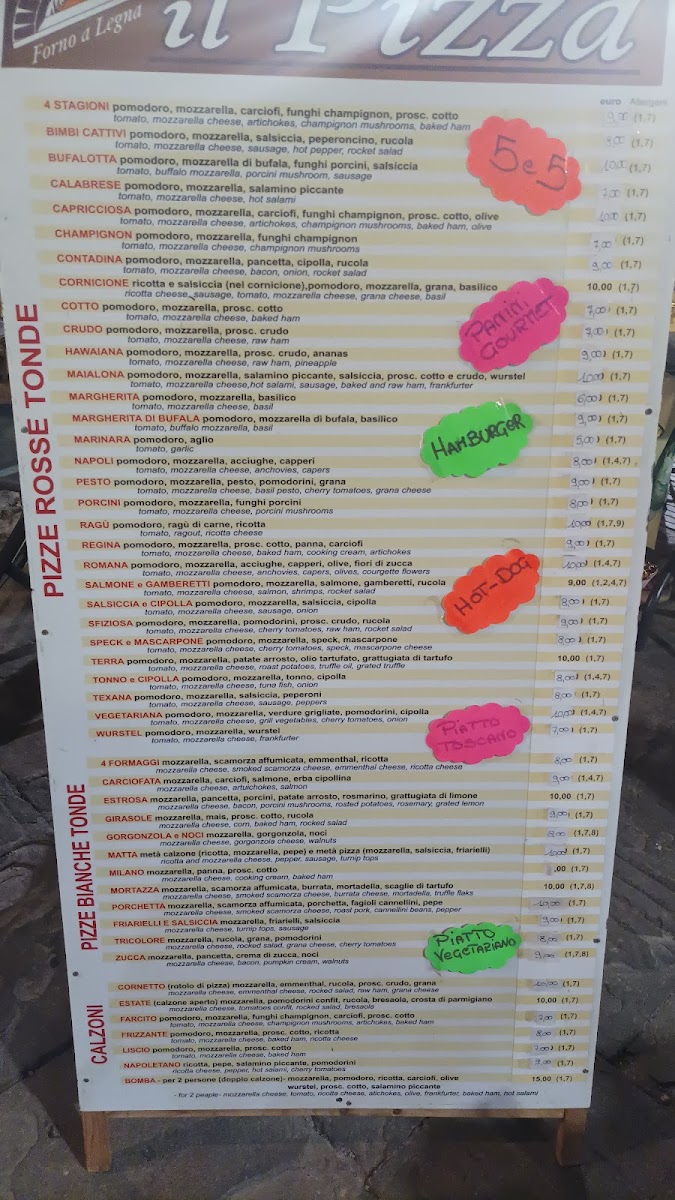 Forno a Legna
il Pizza
euro Allergeni
4 STAGIONI pomodoro, mozzarella, carciofi, funghi champignon, prosc. cotto (1,7)
tomato, mozzarella cheese, artichokes, champignon mushrooms, baked ham
BIMBI CATTIVI pomodoro, mozzarella, salsiccia, peperoncino, rucola 8,00 (1,7)
tomato, mozzarella cheese, sausage, hot pepper, rocket salad
5 e 5
BUFALOTTA pomodoro, mozzarella di bufala, funghi porcini, salsiccia 10,00 (1,7)
tomato, buffalo mozzarella, porcini mushroom, sausage
CALABRESE pomodoro, mozzarella, salamino piccante 7,00 (1,7)
tomato, mozzarella cheese, hot salami
CAPRICCIOSA pomodoro, mozzarella, carciofi, funghi champignon, prosc. cotto, olive 10,00 (1,7)
tomato, mozzarella cheese, artichokes, champignon mushrooms, baked ham, olive
CHAMPIGNON pomodoro, mozzarella, funghi champignon 7,00 (1,7)
tomato, mozzarella cheese, champignon mushrooms
CONTADINA pomodoro, mozzarella, pancetta, cipolla, rucola 9,00 (1,7)
tomato, mozzarella cheese, bacon, onion, rocket salad
CORNICIONE ricotta e salsiccia (nel cornicione),pomodoro, mozzarella, grana, basilico 10,00 (1,7)
ricotta cheese, sausage, tomato, mozzarella cheese, grana cheese, basil
COTTO pomodoro, mozzarella, prosc. cotto 7,00 (1,7)
tomato, mozzarella cheese, baked ham
PANINI GOURMET
CRUDO pomodoro, mozzarella, prosc. crudo 7,00 (1,7)
tomato, mozzarella cheese, raw ham
HAWAIANA pomodoro, mozzarella, prosc. crudo, ananas 9,00 (1,7)
tomato, mozzarella cheese, raw ham, pineapple
MAIALONA pomodoro, mozzarella, salamino piccante, salsiccia, prosc. cotto e crudo, wurstel 10,00 (1,7)
tomato, mozzarella cheese,hot salami, sausage, baked and raw ham, frankfurter
MARGHERITA pomodoro, mozzarella, basilico 6,00 (1,7)
tomato, mozzarella cheese, basil
MARGHERITA DI BUFALA pomodoro, mozzarella di bufala, basilico 9,00 (1,7)
tomato, buffalo mozzarella, basil
HAMBURGER
MARINARA pomodoro, aglio 5,00 (1,7)
tomato, garlic
NAPOLI pomodoro, mozzarella, acciughe, capperi 8,00 (1,4,7)
tomato, mozzarella cheese, anchovies, capers
PESTO pomodoro, mozzarella, pesto, pomodorini, grana 9,00 (1,7)
tomato, mozzarella cheese, basil pesto, cherry tomatoes, grana cheese
PORCINI pomodoro, mozzarella, funghi porcini 8,00 (1,7)
tomato, mozzarella cheese, porcini mushrooms
RAGÙ pomodoro, ragù di carne, ricotta 10,00 (1,7,9)
tomato, ragout, ricotta cheese
REGINA pomodoro, mozzarella, prosc. cotto, panna, carciofi 9,00 (1,7)
tomato, mozzarella cheese, baked ham, cooking cream, artichokes
ROMANA pomodoro, mozzarella, acciughe, capperi, olive, fiori di zucca 10,00 (1,4,7)
tomato, mozzarella cheese, anchovies, capers, olives, courgette flowers
HOT-DOG
SALMONE e GAMBERETTI pomodoro, mozzarella, salmone, gamberetti, rucola 9,00 (1,2,4,7)
tomato, mozzarella cheese, salmon, shrimps, rocket salad
SALSICCIA e CIPOLLA pomodoro, mozzarella, salsiccia, cipolla 8,00 (1,7)
tomato, mozzarella cheese, sausage, onion
SFIZIOSA pomodoro, mozzarella, pomodorini, prosc. crudo, rucola 9,00 (1,7)
tomato, mozzarella cheese, cherry tomatoes, raw ham, rocket salad
SPECK e MASCARPONE pomodoro, mozzarella, speck, mascarpone 8,00 (1,7)
tomato, mozzarella cheese, cherry tomatoes, speck, mascarpone cheese
TERRA pomodoro, mozzarella, patate arrosto, olio tartufato, grattugiata di tartufo 10,00 (1,7)
tomato, mozzarella cheese, roast potatoes, truffle oil, grated truffle
TONNO e CIPOLLA pomodoro, mozzarella, tonno, cipolla 8,00 (1,4,7)
tomato, mozzarella cheese, tuna fish, onion
TEXANA pomodoro, mozzarella, salsiccia, peperoni 8,00 (1,7)
tomato, mozzarella cheese, sausage, peppers
VEGETARIANA pomodoro, mozzarella, verdure grigliate, pomodorini, cipolla 10,00 (1,4,7)
tomato, mozzarella cheese, grill vegetables, cherry tomatoes, onion
WURSTEL pomodoro, mozzarella, wurstel 7,00 (1,7)
tomato, mozzarella cheese, frankfurter
PIATTO TOSCANO
PIZZE ROSSE TONDE
4 FORMAGGI mozzarella, scamorza affumicata, emmenthal, ricotta 8,00 (1,7)
mozzarella cheese, smoked scamorza cheese, emmenthal cheese, ricotta cheese
CARCIOFATA mozzarella, carciofi, salmone, erba cipollina 9,00 (1,4,7)
mozzarella cheese, artuichokes, salmon
ESTROSA mozzarella, pancetta, porcini, patate arrosto, rosmarino, grattugiata di limone 10,00 (1,7)
mozzarella cheese, bacon, porcini mushrooms, rosted potatoes, rosemary, grated lemon
GIRASOLE mozzarella, mais, prosc. cotto, rucola 9,00 (1,7)
mozzarella cheese, corn, baked ham, rocked salad
GORGONZOLA e NOCI mozzarella, gorgonzola, noci 8,00 (1,7,8)
mozzarella cheese, gorgonzola cheese, walnuts
MATTA metà calzone (ricotta, mozzarella, pepe) e metà pizza (mozzarella, salsiccia, friarielli) 10,00 (1,7)
ricotta and mozzarella cheese, pepper, sausage, turnip tops
MILANO mozzarella, panna, prosc. cotto ,00 (1,7)
mozzarella cheese, cooking cream, baked ham
MORTAZZA mozzarella, scamorza affumicata, burrata, mortadella, scaglie di tartufo 10,00 (1,7,8)
mozzarella cheese, smoked scamorza cheese, burrata cheese, mortadella, truffle flaks
PORCHETTA mozzarella, scamorza affumicata, porchetta, fagioli cannellini, pepe 10,00 (1,7)
mozzarella cheese, smoked scamorza cheese, roast pork, cannellini beans, pepper
FRIARIELLI E SALSICCIA mozzarella, friarielli, salsiccia 9,00 (1,7)
mozzarella cheese, turnip tops, sausage
TRICOLORE mozzarella, rucola, grana, pomodorini 8,00 (1,7)
mozzarella cheese, rocked salad, grana cheese, cherry tomatoes
ZUCCA mozzarella, pancetta, crema di zucca, noci 9,00 (1,7,8)
mozzarella cheese, bacon, pumpkin cream, walnuts
PIATTO VEGETARIANO
PIZZE BIANCHE TONDE
CORNETTO (rotolo di pizza) mozzarella, emmenthal, rucola, prosc. crudo, grana 10,00 (1,7)
mozzarella cheese, emmenthal cheese, rocked salad, raw ham, grana cheese
ESTATE (calzone aperto) mozzarella, pomodorini confit, rucola, bresaola, crosta di parmigiano 10,00 (1,7)
mozzarella cheese, tomatoes confit, rocked salad, bresaola
FARCITO pomodoro, mozzarella, funghi champignon, carciofi, prosc. cotto 7,00 (1,7)
tomato, mozzarella cheese, champignon mushrooms, artichokes, baked ham
FRIZZANTE pomodoro, mozzarella, prosc. cotto, ricotta 8,00 (1,7)
tomato, mozzarella cheese, baked ham, ricotta cheese
LISCIO pomodoro, mozzarella, prosc. cotto 7,00 (1,7)
tomato, mozzarella cheese, baked ham
NAPOLETANO ricotta, pepe, salamino piccante, pomodorini 9,00 (1,7)
ricotta cheese, pepper, hut salami, cherry tomatoes
BOMBA - per 2 persone (doppio calzone)- mozzarella, pomodoro, ricotta, carciofi, olive 15,00 (1,7)
wurstel, prosc. cotto, salamino piccante
- for 2 peaple- mozzarella cheese, tomato, ricotta cheese, atichokes, olive, frankfurter, baked ham, hot salami
CALZONI